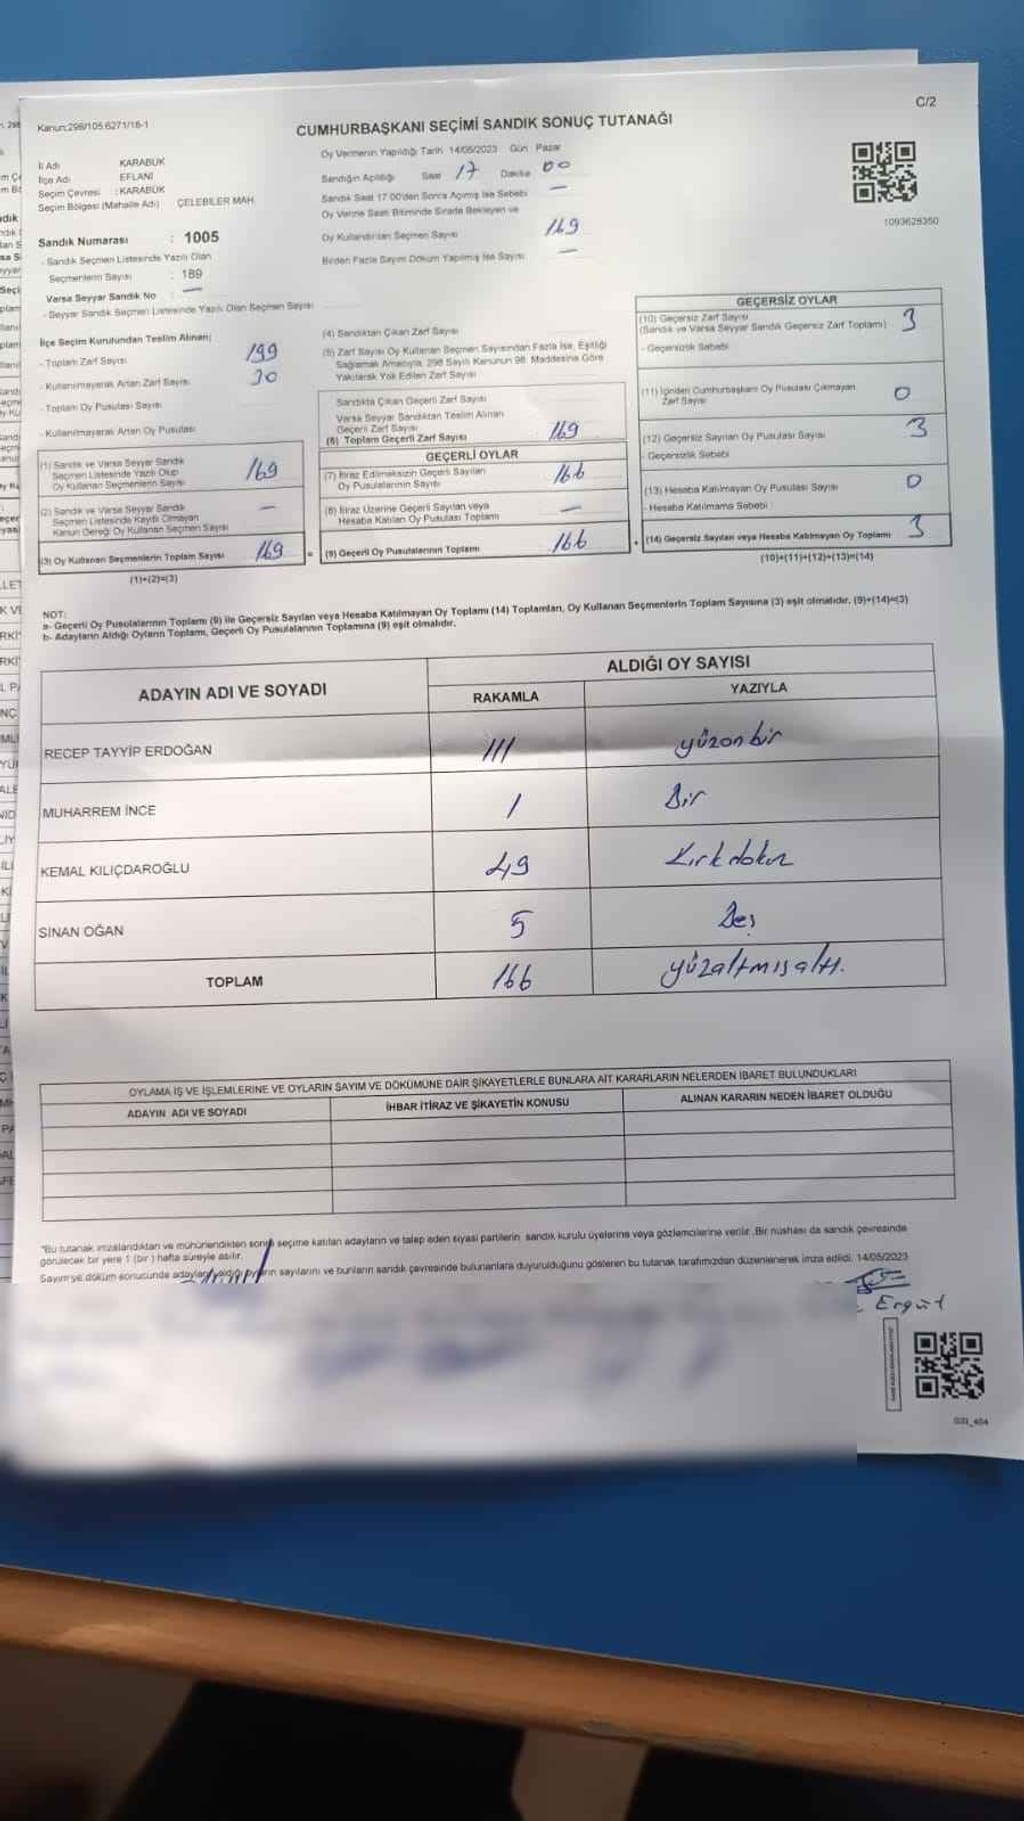 C/2
Kanun:298/105.6271/16-1
CUMHURBAŞKANI SEÇİMİ SANDIK SONUÇ TUTANAĞI
Oy Vermenin Yapıldığı Tarih 14/05/2023 Gün : Pazar
İl Adı KARABÜK
İlçe Adı EFLANİ
Seçim Çevresi : KARABÜK
Seçim Bölgesi (Mahalle Adı) ÇELEBİLER MAH.
Sandığın Açıldığı Saat 17 Dakika 00
Sandık Saat 17:00'den Sonra Açılmış İse Sebebi —
Oy Verme Saati Bitiminde Sırada Bekleyen ve
Oy Kullandırılan Seçmen Sayısı 169
Birden Fazla Sayım Döküm Yapılmış İse Sayısı —
1093629350
Sandık Numarası : 1005
- Sandık Seçmen Listesinde Yazılı Olan
Seçmenlerin Sayısı : 189
Varsa Seyyar Sandık No —
- Seyyar Sandık Seçmen Listesinde Yazılı Olan Seçmen Sayısı
İlçe Seçim Kurulundan Teslim Alınan;
- Toplam Zarf Sayısı 199
- Kullanılmayarak Artan Zarf Sayısı 30
- Toplam Oy Pusulası Sayısı
- Kullanılmayarak Artan Oy Pusulası
(1) Sandık ve Varsa Seyyar Sandık
Seçmen Listesinde Yazılı Olup
Oy Kullanan Seçmenlerin Sayısı 169
(2) Sandık ve Varsa Seyyar Sandık
Seçmen Listesinde Kayıtlı Olmayan
Kanun Gereği Oy Kullanan Seçmen Sayısı —
(3) Oy Kullanan Seçmenlerin Toplam Sayısı 169
(1)+(2)=(3)
(4) Sandıktan Çıkan Zarf Sayısı
(5) Zarf Sayısı Oy Kullanan Seçmen Sayısından Fazla İse, Eşitliği
Sağlamak Amacıyla, 298 Sayılı Kanunun 98. Maddesine Göre
Yakılarak Yok Edilen Zarf Sayısı
Sandıkta Çıkan Geçerli Zarf Sayısı
Varsa Seyyar Sandıktan Teslim Alınan
Geçerli Zarf Sayısı
(6) Toplam Geçerli Zarf Sayısı 169
GEÇERLİ OYLAR
(7) İtiraz Edilmeksizin Geçerli Sayılan
Oy Pusulalarının Sayısı 166
(8) İtiraz Üzerine Geçerli Sayılan veya
Hesaba Katılan Oy Pusulası Toplamı —
= (9) Geçerli Oy Pusulalarının Toplamı 166
GEÇERSİZ OYLAR
(10) Geçersiz Zarf Sayısı
(Sandık ve Varsa Seyyar Sandık Geçersiz Zarf Toplamı) 3
- Geçersizlik Sebebi
(11) İçinden Cumhurbaşkanı Oy Pusulası Çıkmayan
Zarf Sayısı 0
(12) Geçersiz Sayılan Oy Pusulası Sayısı 3
- Geçersizlik Sebebi
(13) Hesaba Katılmayan Oy Pusulası Sayısı 0
- Hesaba Katılmama Sebebi
+ (14) Geçersiz Sayılan veya Hesaba Katılmayan Oy Toplamı 3
(10)+(11)+(12)+(13)=(14)
NOT:
a- Geçerli Oy Pusulalarının Toplamı (9) ile Geçersiz Sayılan veya Hesaba Katılmayan Oy Toplamı (14) Toplamları, Oy Kullanan Seçmenlerin Toplam Sayısına (3) eşit olmalıdır. (9)+(14)=(3)
b- Adayların Aldığı Oyların Toplamı, Geçerli Oy Pusulalarının Toplamına (9) eşit olmalıdır.
ADAYIN ADI VE SOYADI
ALDIĞI OY SAYISI
RAKAMLA YAZIYLA
RECEP TAYYİP ERDOĞAN 111 yüzonbir
MUHARREM İNCE 1 Bir
KEMAL KILIÇDAROĞLU 49 Kırkdokuz
SİNAN OĞAN 5 Beş
TOPLAM 166 yüzaltmışaltı.
OYLAMA İŞ VE İŞLEMLERİNE VE OYLARIN SAYIM VE DÖKÜMÜNE DAİR ŞİKAYETLERLE BUNLARA AİT KARARLARIN NELERDEN İBARET BULUNDUKLARI
ADAYIN ADI VE SOYADI İHBAR İTİRAZ VE ŞİKAYETİN KONUSU ALINAN KARARIN NEDEN İBARET OLDUĞU
*Bu tutanak imzalandıktan ve mühürlendikten sonra seçime katılan adayların ve talep eden siyasi partilerin sandık kurulu üyelerine veya gözlemcilerine verilir. Bir nüshası da sandık çevresinde
görülecek bir yere 1 (bir) hafta süreyle asılır.
Sayım ve döküm sonucunda adayların aldığı oyların sayılarını ve bunların sandık çevresinde bulunanlara duyurulduğunu gösteren bu tutanak tarafımızdan düzenlenerek imza edildi. 14/05/2023
Ergüt